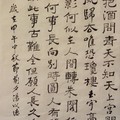 把酒問青天不知天上宮
歸去惟恐瓊樓玉宇高
影何似在人間轉朱閣
何事長向別時圓人有
此事古難全但願人長久
歲次甲午中秋節